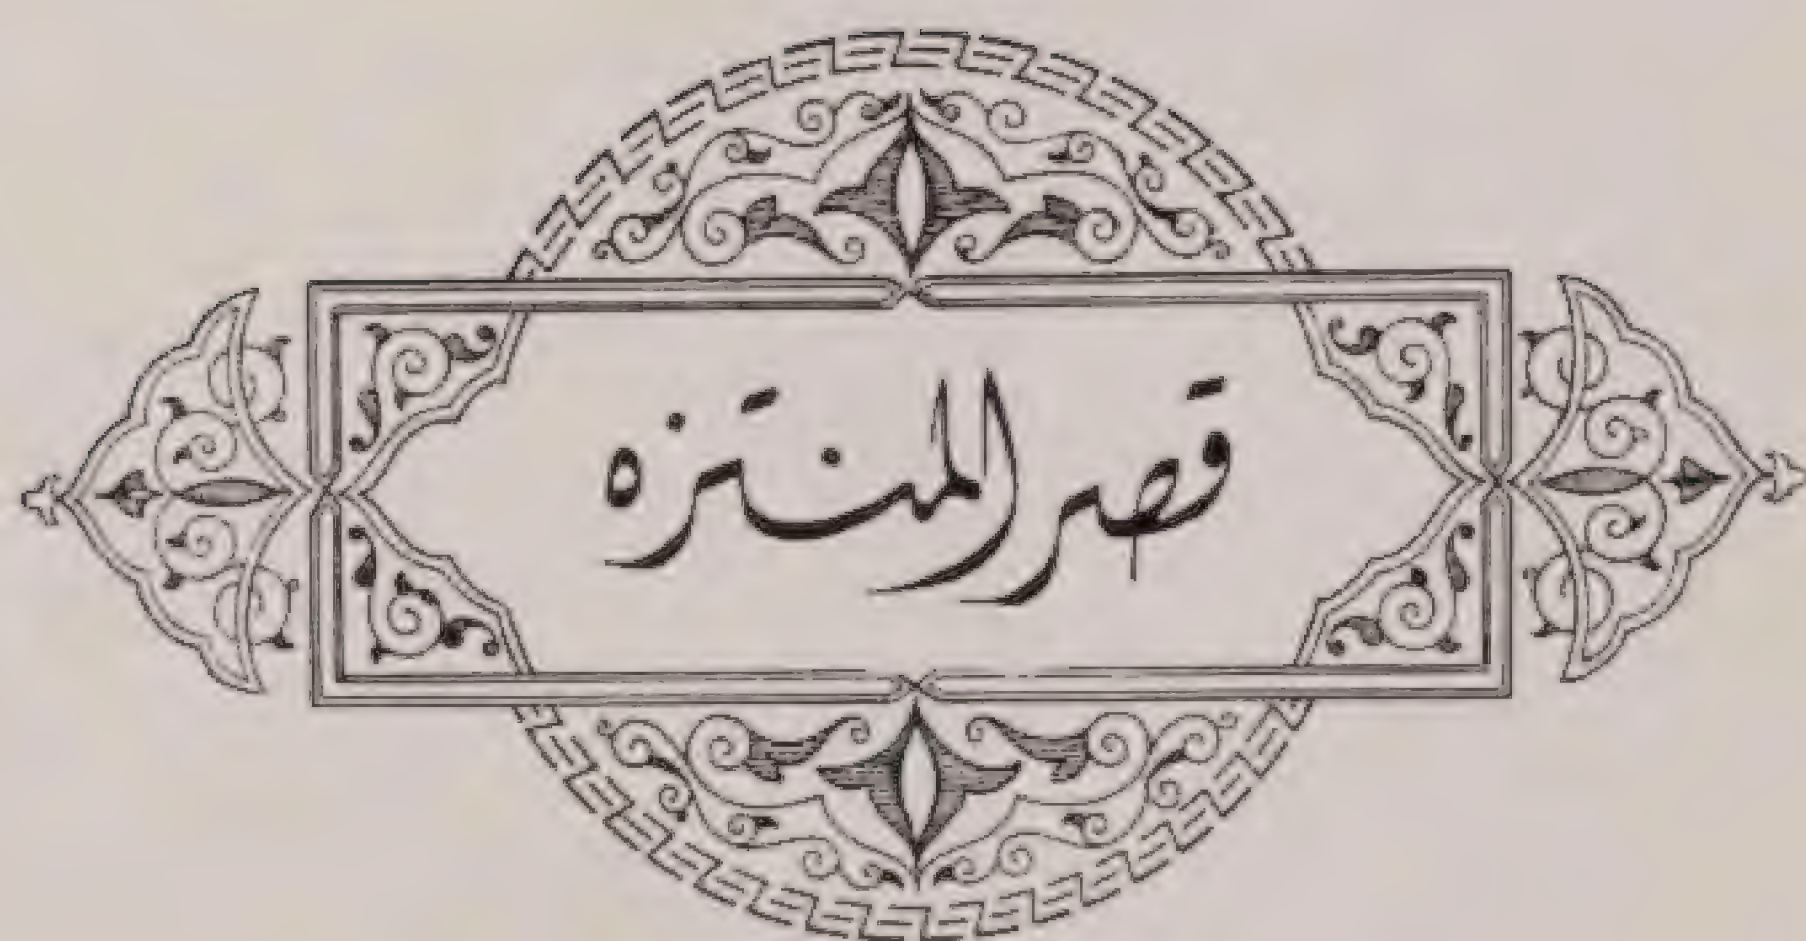 قصر المنتزه